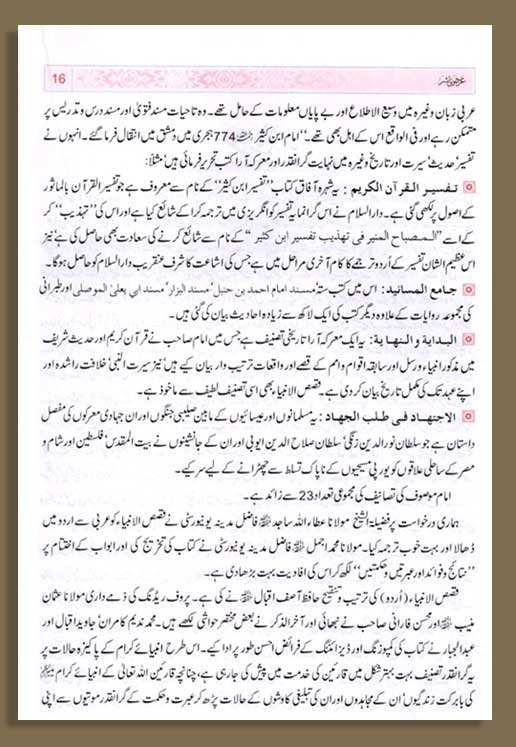 16
عرض ناشر
عربی زبان وغیرہ میں وسیع الاطلاع اور بے پایاں معلومات کے حامل تھے۔ وہ تاحیات مسند فتویٰ اور مسند درس و تدریس پر
متمکن رہے اور فی الواقع اس کے اہل بھی تھے۔‘‘ امام ابن کثیر رحمہ اللہ 774 ہجری میں دمشق میں انتقال فرما گئے۔ انہوں نے
تفسیر‘ حدیث‘ سیرت اور تاریخ وغیرہ میں نہایت گرانقدر اور معرکہ آرا کتب تحریر فرمائی ہیں‘ مثلاً:
تفسیر القرآن الکریم : یہ شہرہ آفاق کتاب ’’تفسیر ابن کثیر‘‘ کے نام سے معروف ہے جو تفسیر القرآن بالماثور
کے اصول پر لکھی گئی ہے۔ دارالسلام نے اس گرانمایہ تفسیر کو انگریزی میں ترجمہ کرا کے شائع کیا ہے اور اس کی ’’تہذیب‘‘ کر
کے اسے ’’المصباح المنیر فی تهذیب تفسیر ابن کثیر‘‘ کے نام سے شائع کرنے کی سعادت بھی حاصل کی ہے‘ نیز
اس عظیم الشان تفسیر کے اُردو ترجمے کا کام آخری مراحل میں ہے جس کی اشاعت کا شرف عنقریب دارالسلام کو حاصل ہوگا۔
جامع المسانید: اس میں کتب ستہ‘ مسند امام احمد بن حنبل‘ مسند البزار‘ مسند ابی یعلیٰ الموصلی اور طبرانی
کی مجموعہ روایات کے علاوہ دیگر کتب کی ایک لاکھ سے زیادہ احادیث بیان کی گئی ہیں۔
البدایة والنهایة: یہ ایک معرکہ آرا تاریخی تصنیف ہے جس میں امام صاحب نے قرآن کریم اور حدیث شریف
میں مذکور انبیاء و رسل اور سابقہ اقوام و امم کے قصے اور واقعات ترتیب وار بیان کیے ہیں‘ نیز سیرت النبی‘ خلافت راشدہ اور
اپنے عہد تک کی مکمل تاریخ بیان کر دی ہے۔ قصص الانبیاء بھی اسی تصنیف لطیف سے ماخوذ ہے۔
الاجتهاد فی طلب الجهاد: یہ مسلمانوں اور عیسائیوں کے مابین صلیبی جنگوں اور ان جہادی معرکوں کی مفصل
داستان ہے جو سلطان نورالدین زنگی‘ سلطان صلاح الدین ایوبی اور ان کے جانشینوں نے بیت المقدس‘ فلسطین اور شام و
مصر کے ساحلی علاقوں کو یورپی مسیحیوں کے ناپاک تسلط سے چھڑانے کے لیے سر کیے۔
امام موصوف کی تصانیف کی مجموعی تعداد 23 سے زائد ہے۔
ہماری درخواست پر فضیلۃ الشیخ مولانا عطاء اللہ ساجد فاضل مدینہ یونیورسٹی نے قصص الانبیاء کو عربی سے اردو میں
ڈھالا اور بہت خوب ترجمہ کیا۔ مولانا محمد اجمل فاضل مدینہ یونیورسٹی نے کتاب کی تخریج کی اور ابواب کے اختتام پر
’’نتائج و فوائد اور عبرتیں و حکمتیں‘‘ لکھ کر اس کی افادیت بہت بڑھا دی ہے۔
قصص الانبیاء (اُردو) کی ترتیب و تنقیح حافظ آصف اقبال نے کی ہے۔ پروف ریڈنگ کی ذمے داری مولانا عثمان
منیب اور محسن فارانی صاحب نے نبھائی اور آخر الذکر نے بعض مختصر حواشی لکھے ہیں۔ محمد ندیم کامران‘ جاوید اقبال اور
عبدالجبار نے کتاب کی کمپوزنگ اور ڈیزائننگ کے فرائض احسن طور پر ادا کیے۔ اس طرح انبیائے کرام کے پاکیزہ حالات پر
یہ گرانقدر تصنیف بہت بہتر شکل میں قارئین کی خدمت میں پیش کی جا رہی ہے، چنانچہ قارئین اللہ تعالیٰ کے انبیائے کرام
کی بابرکت زندگیوں‘ ان کے مجاہدوں اور ان کی تبلیغی کاوشوں کے حالات پڑھ کر عبرت و حکمت کے گرانقدر موتیوں سے اپنی